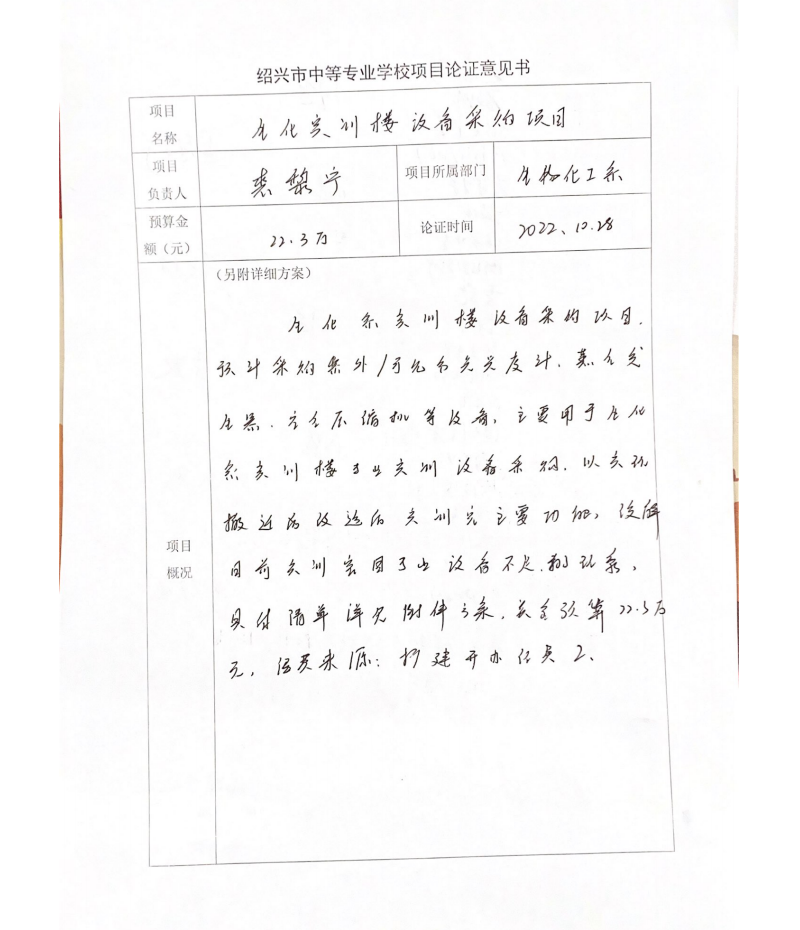 绍兴市中等专业学校项目论证意见书
项目名称 生化实训楼设备采购项目
项目负责人 裘黎宁 项目所属部门 生物化工系
预算金额（元） 22.3万 论证时间 2022、10.28
（另附详细方案）
项目概况
生化系实训楼设备采购项目.
预计采购紫外/可见分光光度计.蒸气发
生器.空气压缩机等设备,主要用于生化
系实训楼专业实训设备采购.以实现
搬迁后改造后实训室主要功能,缓解
目前实训室因专业设备不足
具体清单详见附件方案.资金预算22.3万
元,经费来源: